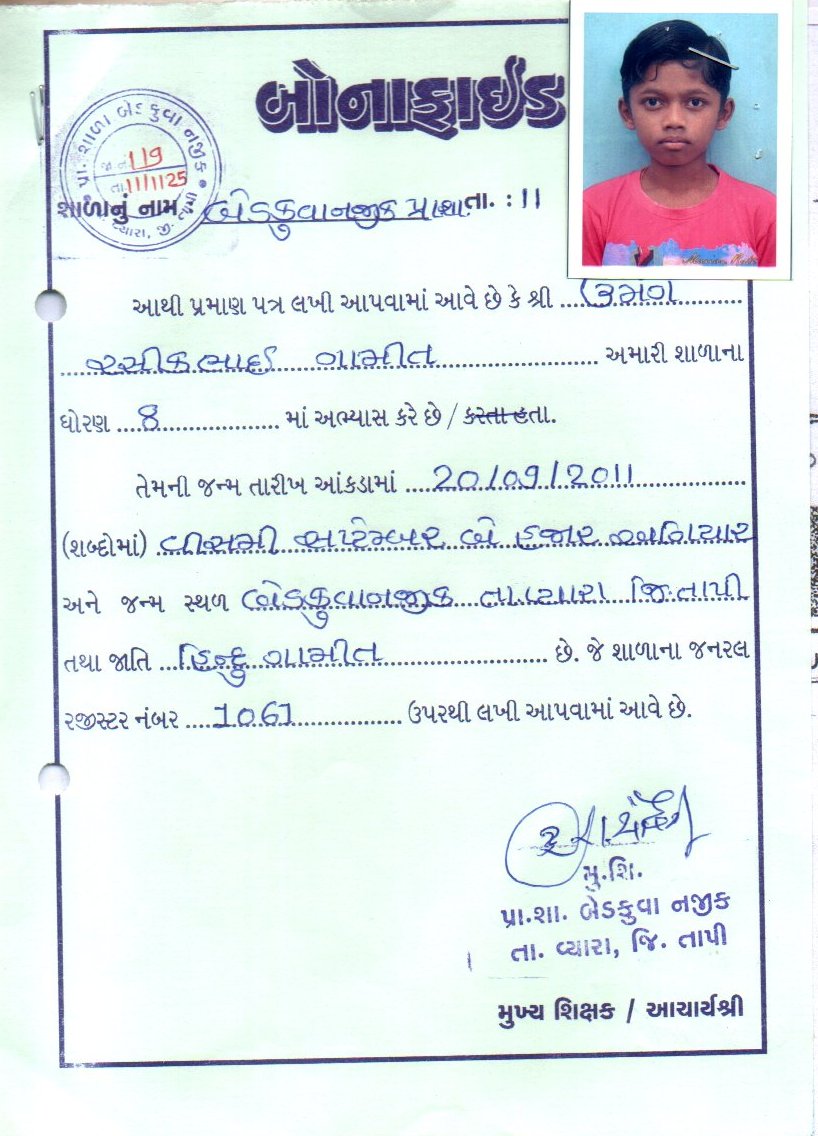 બોનાફાઈડ
પ્રા. શાળા બેડકુવા નજીક
જા.નં. 119
તા. 11/11/25
વ્યારા, જી. તાપી
શાળાનું નામ બેડકુવાનજીક પ્રા શા. તા. : 11
આથી પ્રમાણ પત્ર લખી આપવામાં આવે છે કે શ્રી
રસીકભાઈ ગામીત અમારી શાળાના
ધોરણ 8 માં અભ્યાસ કરે છે / કરતા હતા.
તેમની જન્મ તારીખ આંકડામાં 20/09/2011
(શબ્દોમાં) વીસમી સપ્ટેમ્બર બે હજાર અગિયાર
અને જન્મ સ્થળ બેડકુવાનજીક તા.વ્યારા જિ.તાપી
તથા જાતિ હિન્દુ ગામીત છે. જે શાળાના જનરલ
રજીસ્ટર નંબર 1061 ઉપરથી લખી આપવામાં આવે છે.
મુ.શિ.
પ્રા.શા. બેડકુવા નજીક
તા. વ્યારા, જિ. તાપી
મુખ્ય શિક્ષક / આચાર્યશ્રી